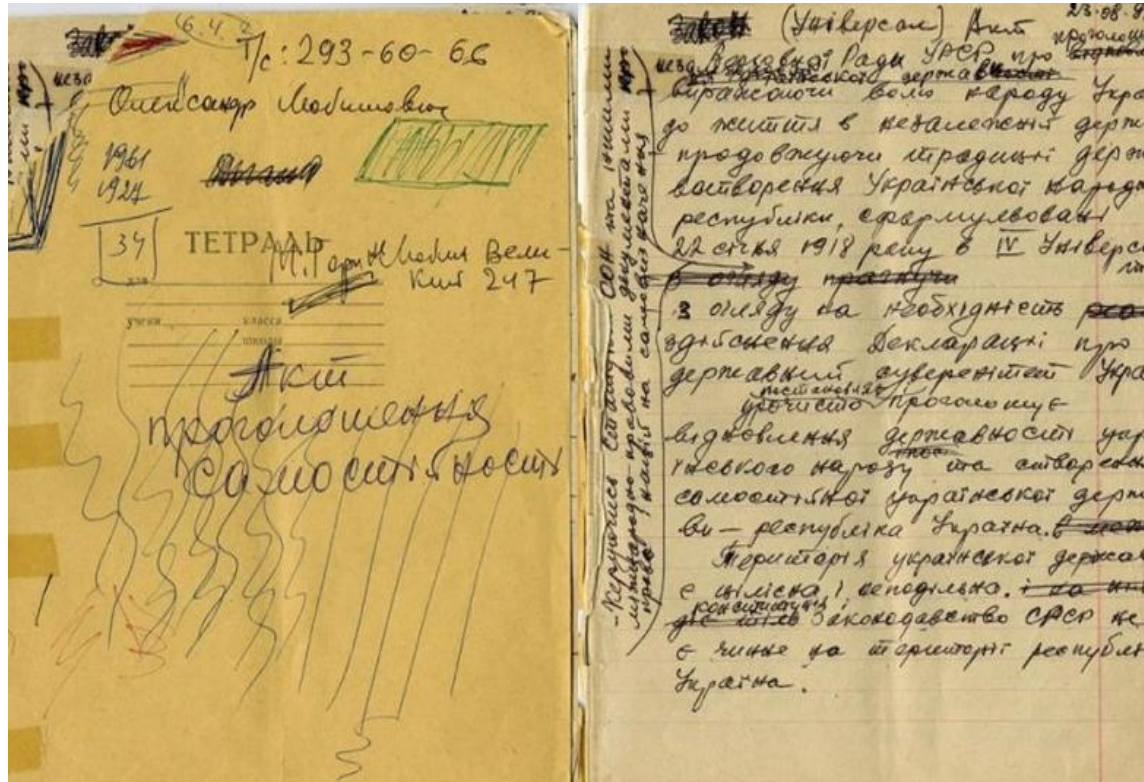 6.4.2
Т/с: 293-60-66
Олександр Любимович
1961
1927
34
ТЕТРАДЬ
М. Горинь Любин Вели-
кий 247
для
учени класса
школы
Акт
проголошення
самостійності
23-08-9
Закон (Універсал) Акт
проголош
Верховної Ради УРСР про
української держав
виражаючи волю народу Укра
до життя в незалежній держ
- продовжуючи традиції держ
вотворення Української Народ
республіки, сформульовані
22 січня 1918 року в IV Універс
в огляду прагнучи
з огляду на необхідність
здійснення Декларації про
державний суверенітет Укра
постановляє
урочисто проголошує
відновлення державності укра
їнського народу та створен
самостійної української держ
ви — республіка Україна.
Територія української держав
є цілісна, і неподільна.
конституція і
Законодавство СРСР не
є чинне на території республі
Україна.
- Керуючись Статутом ООН та іншими
міжнародно-правовими документами про
право націй на самовизначення